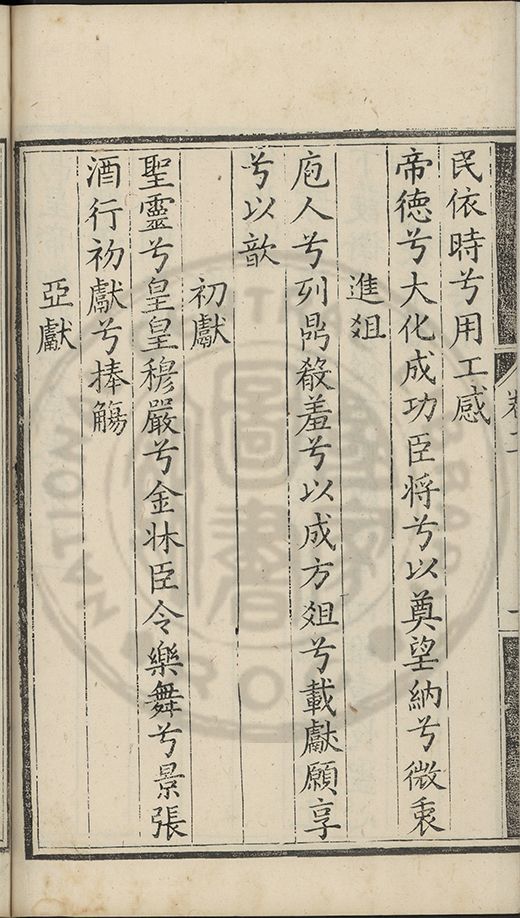 民依時兮用工感
帝德兮大化成功臣将兮以奠望納兮微衷
進爼
庖人兮列鼎殽羞兮以成方爼兮載獻願享
兮以歆
初獻
聖靈兮皇皇穆嚴兮金牀臣令樂舞兮景張
酒行初獻兮捧觴
亞獻